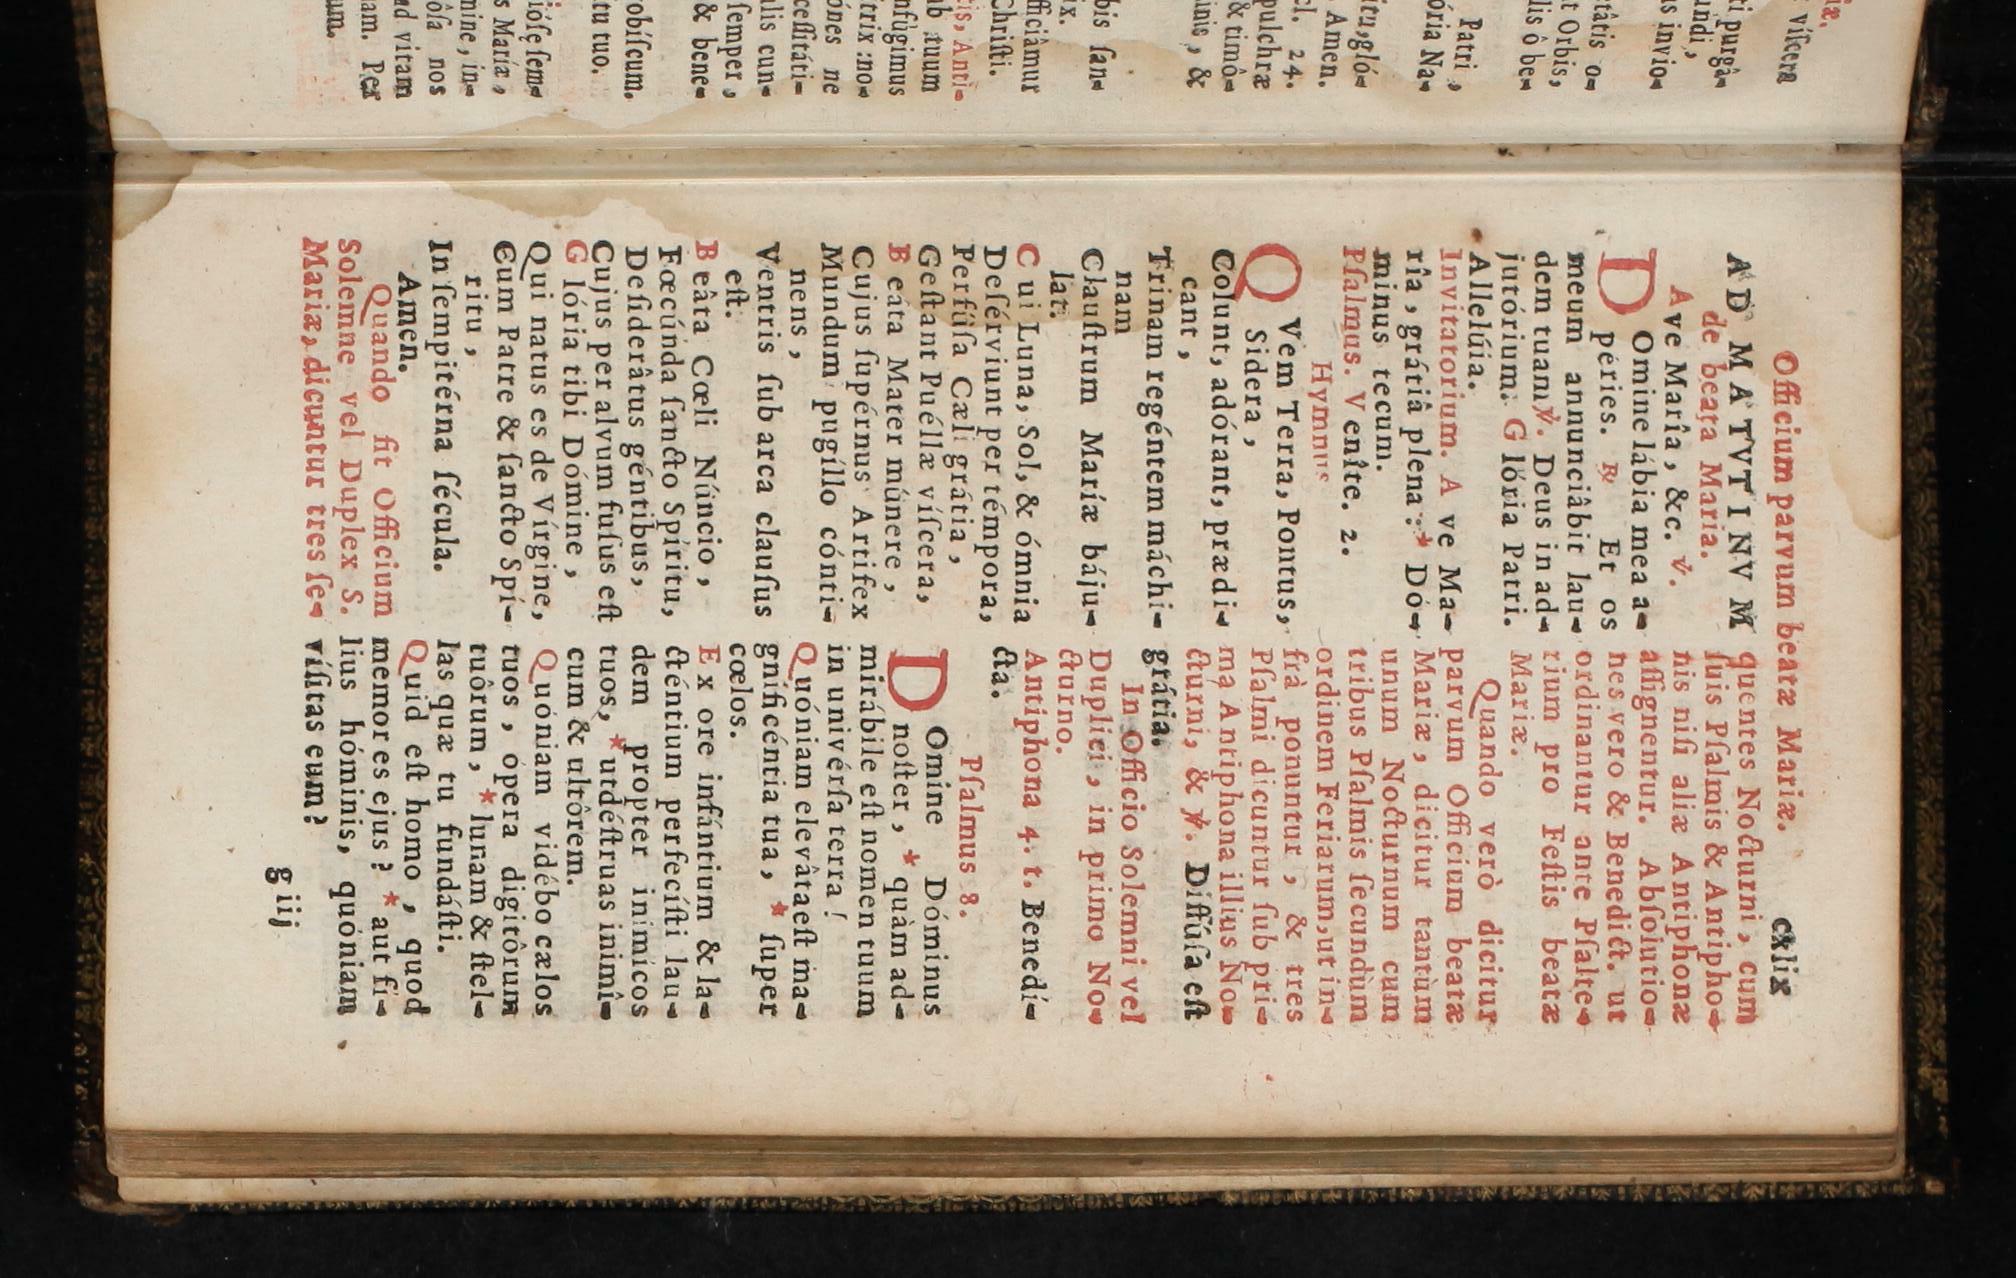 Officium parvum beatæ Mariæ. cxlix
AD MATVTINVM
de beata Maria.
Ave María, &c. ℣.
Domine lábia mea a-
péries. ℟ Et os
meum annunciâbit lau-
dem tuam ℣. Deus in ad-
jutórium. Glória Patri.
Allelúia.
Invitatorium. Ave Ma-
rîa, grátiâ plena: * Dó-
minus tecum.
Psalmus. Veníte. 2.
Hymnus
QVem Terra, Pontus,
Sidera,
Colunt, adórant, prædi-
cant,
Trinam regéntem máchi-
nam
Claustrum Maríæ báju-
lat.
Cui Luna, Sol, & ómnia
Desérviunt per témpora,
Perfúsa Cæli grátia,
Gestant Puéllæ víscera,
Beáta Mater múnere,
Cujus supérnus Artifex
Mundum pugíllo cónti-
nens,
Ventris sub arca clausus
est.
Beâta Cœli Núncio,
Fœcúnda sancto Spíritu,
Desiderâtus géntibus,
Cujus per alvum fusus est
Glória tibi Dómine,
Qui natus es de Vírgine,
Cum Patre & sancto Spí-
ritu,
In sempitérna sécula.
Amen.
Quando fit Officium
Solemne vel Duplex S.
Mariæ, dicuntur tres se-
quentes Nocturni, cum
suis Psalmis & Antipho-
nis nisi aliæ Antiphonæ
assignentur. Absolutio-
nes vero & Benedict. ut
ordinantur ante Psalte-
rium pro Festis beatæ
Mariæ.
Quando verò dicitur
parvum Officium beatæ
Mariæ, dicitur tantùm
unum Nocturnum cum
tribus Psalmis secundùm
ordinem Feriarum, ut in-
frà ponuntur, & tres
Psalmi dicuntur sub pri-
ma Antiphona illius No-
cturni, & ℣. Diffúsa est
grátia.
In Officio Solemni vel
Duplici, in primo No-
cturno.
Antiphona 4. t. Benedí-
cta.
Psalmus 8.
Domine Dóminus
noster, * quàm ad-
mirábile est nomen tuum
in univérsa terra!
Quóniam elevâta est ma-
gnificéntia tua, * super
cœlos.
Ex ore infántium & la-
cténtium perfecísti lau-
dem propter inimícos
tuos, * ut déstruas inimî-
cum & ultôrem.
Quóniam vidébo cælos
tuos, ópera digitôrum
tuôrum, * lunam & stel-
las quæ tu fundásti.
Quid est homo, quod
memor es ejus? * aut fi-
lius hóminis, quóniam
vísitas eum?
g iij
iæ.
víscera
ti purgâ-
undi,
is invio-
tâtis o-
t Orbis,
lis ô be-
Patri,
ória Na-
itu, gló-
Amen.
cl. 24.
pulchræ
& timô-
inis, &
bis san-
ix.
fficiâmur
Christi.
cis, Anti-
ab tuum
nfúgimus
trix: no-
ónes ne
cessitáti-
lis cun-
semper,
& bene-
robíscum.
tu tuo.
iósæ sem-
s Maríæ,
mine, in-
ôsa nos
ad vitam
nam. Per
um.